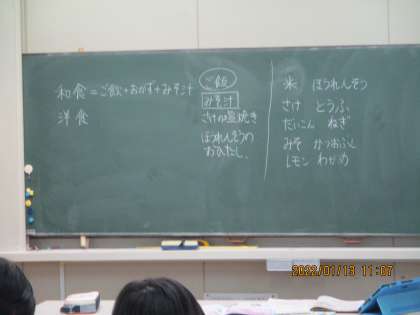 和食=ご飯+おかず+みそ汁
洋食
ご飯
みそ汁
さけの塩焼き
ほうれんそうの
おひたし
米 ほうれんそう
さけ とうふ
だいこん ねぎ
みそ かつおぶし
レモン わかめ
2022/01/13 11:07